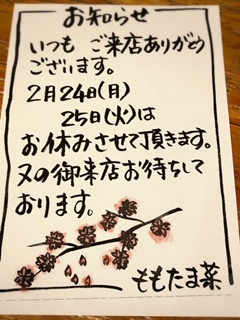 お知らせ
いつも ご来店ありがとう
ございます。
2月24日(月)
25日(火)は
お休みさせて頂きます。
又の御来店お待ちして
おります。
ももたま菜